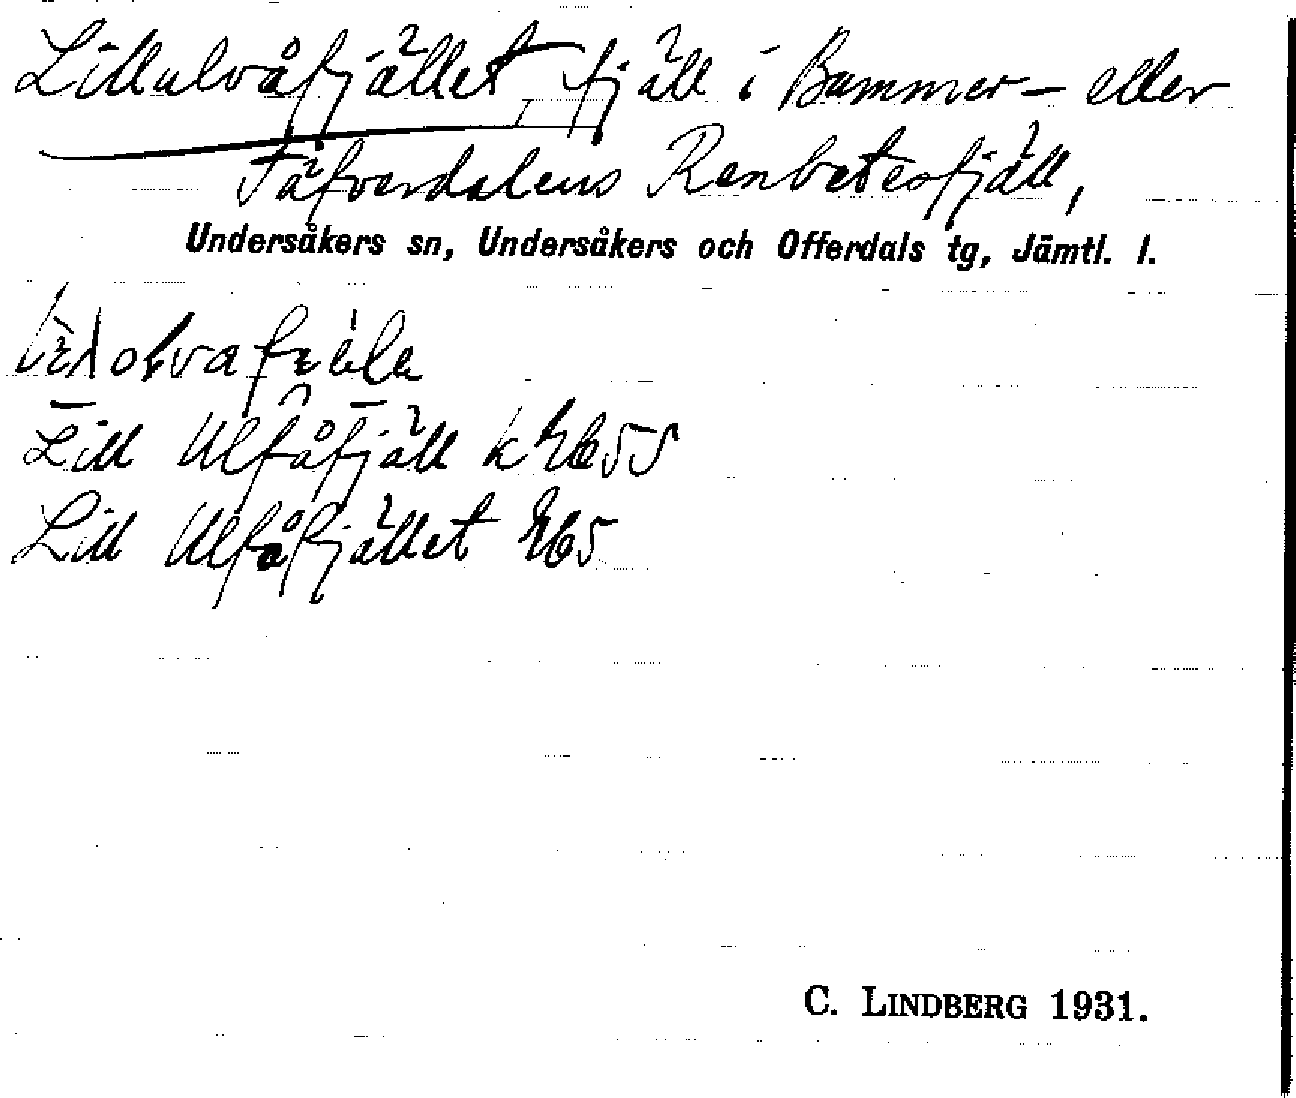 Lillulvåfjället fjäll i Bummer- eller
Täfverdalens Renbetesfjäll,
Undersåkers sn, Undersåkers och Offerdals tg, Jämtl. l.
Lill Ulfåfjäll k
Lill Ulfåfjället
C. LINDBERG 1931.